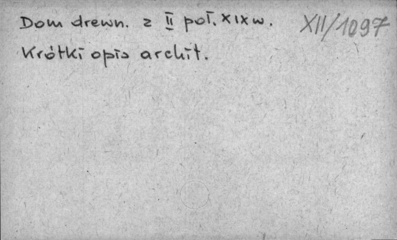 Dom drewn. z II poł. XIX w. XII/1097
Krótki opis archit.